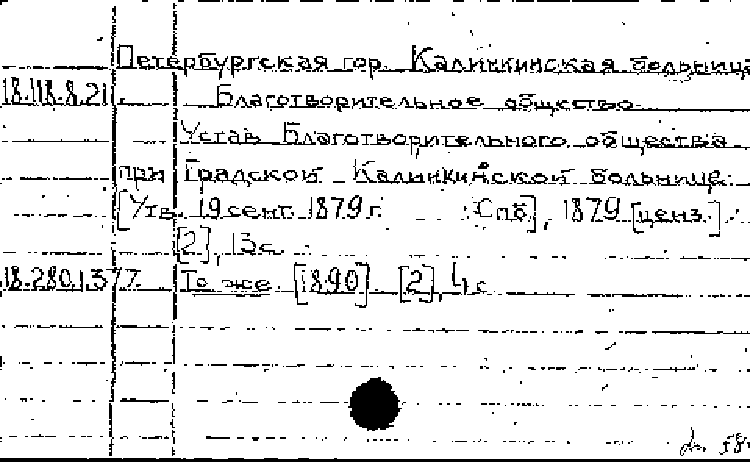 Петербургская гор. Калинкинская больница
18.118.8.21. Благотворительное общество
Устав Благотворительного общества
при Градской Калинкинской больнице.
[Утв. 19 сент. 1879 г. Спб], 1879 [ценз.].
[2], 13 с.
18.280.1.377. То же. [1890]. [2], 4 с.